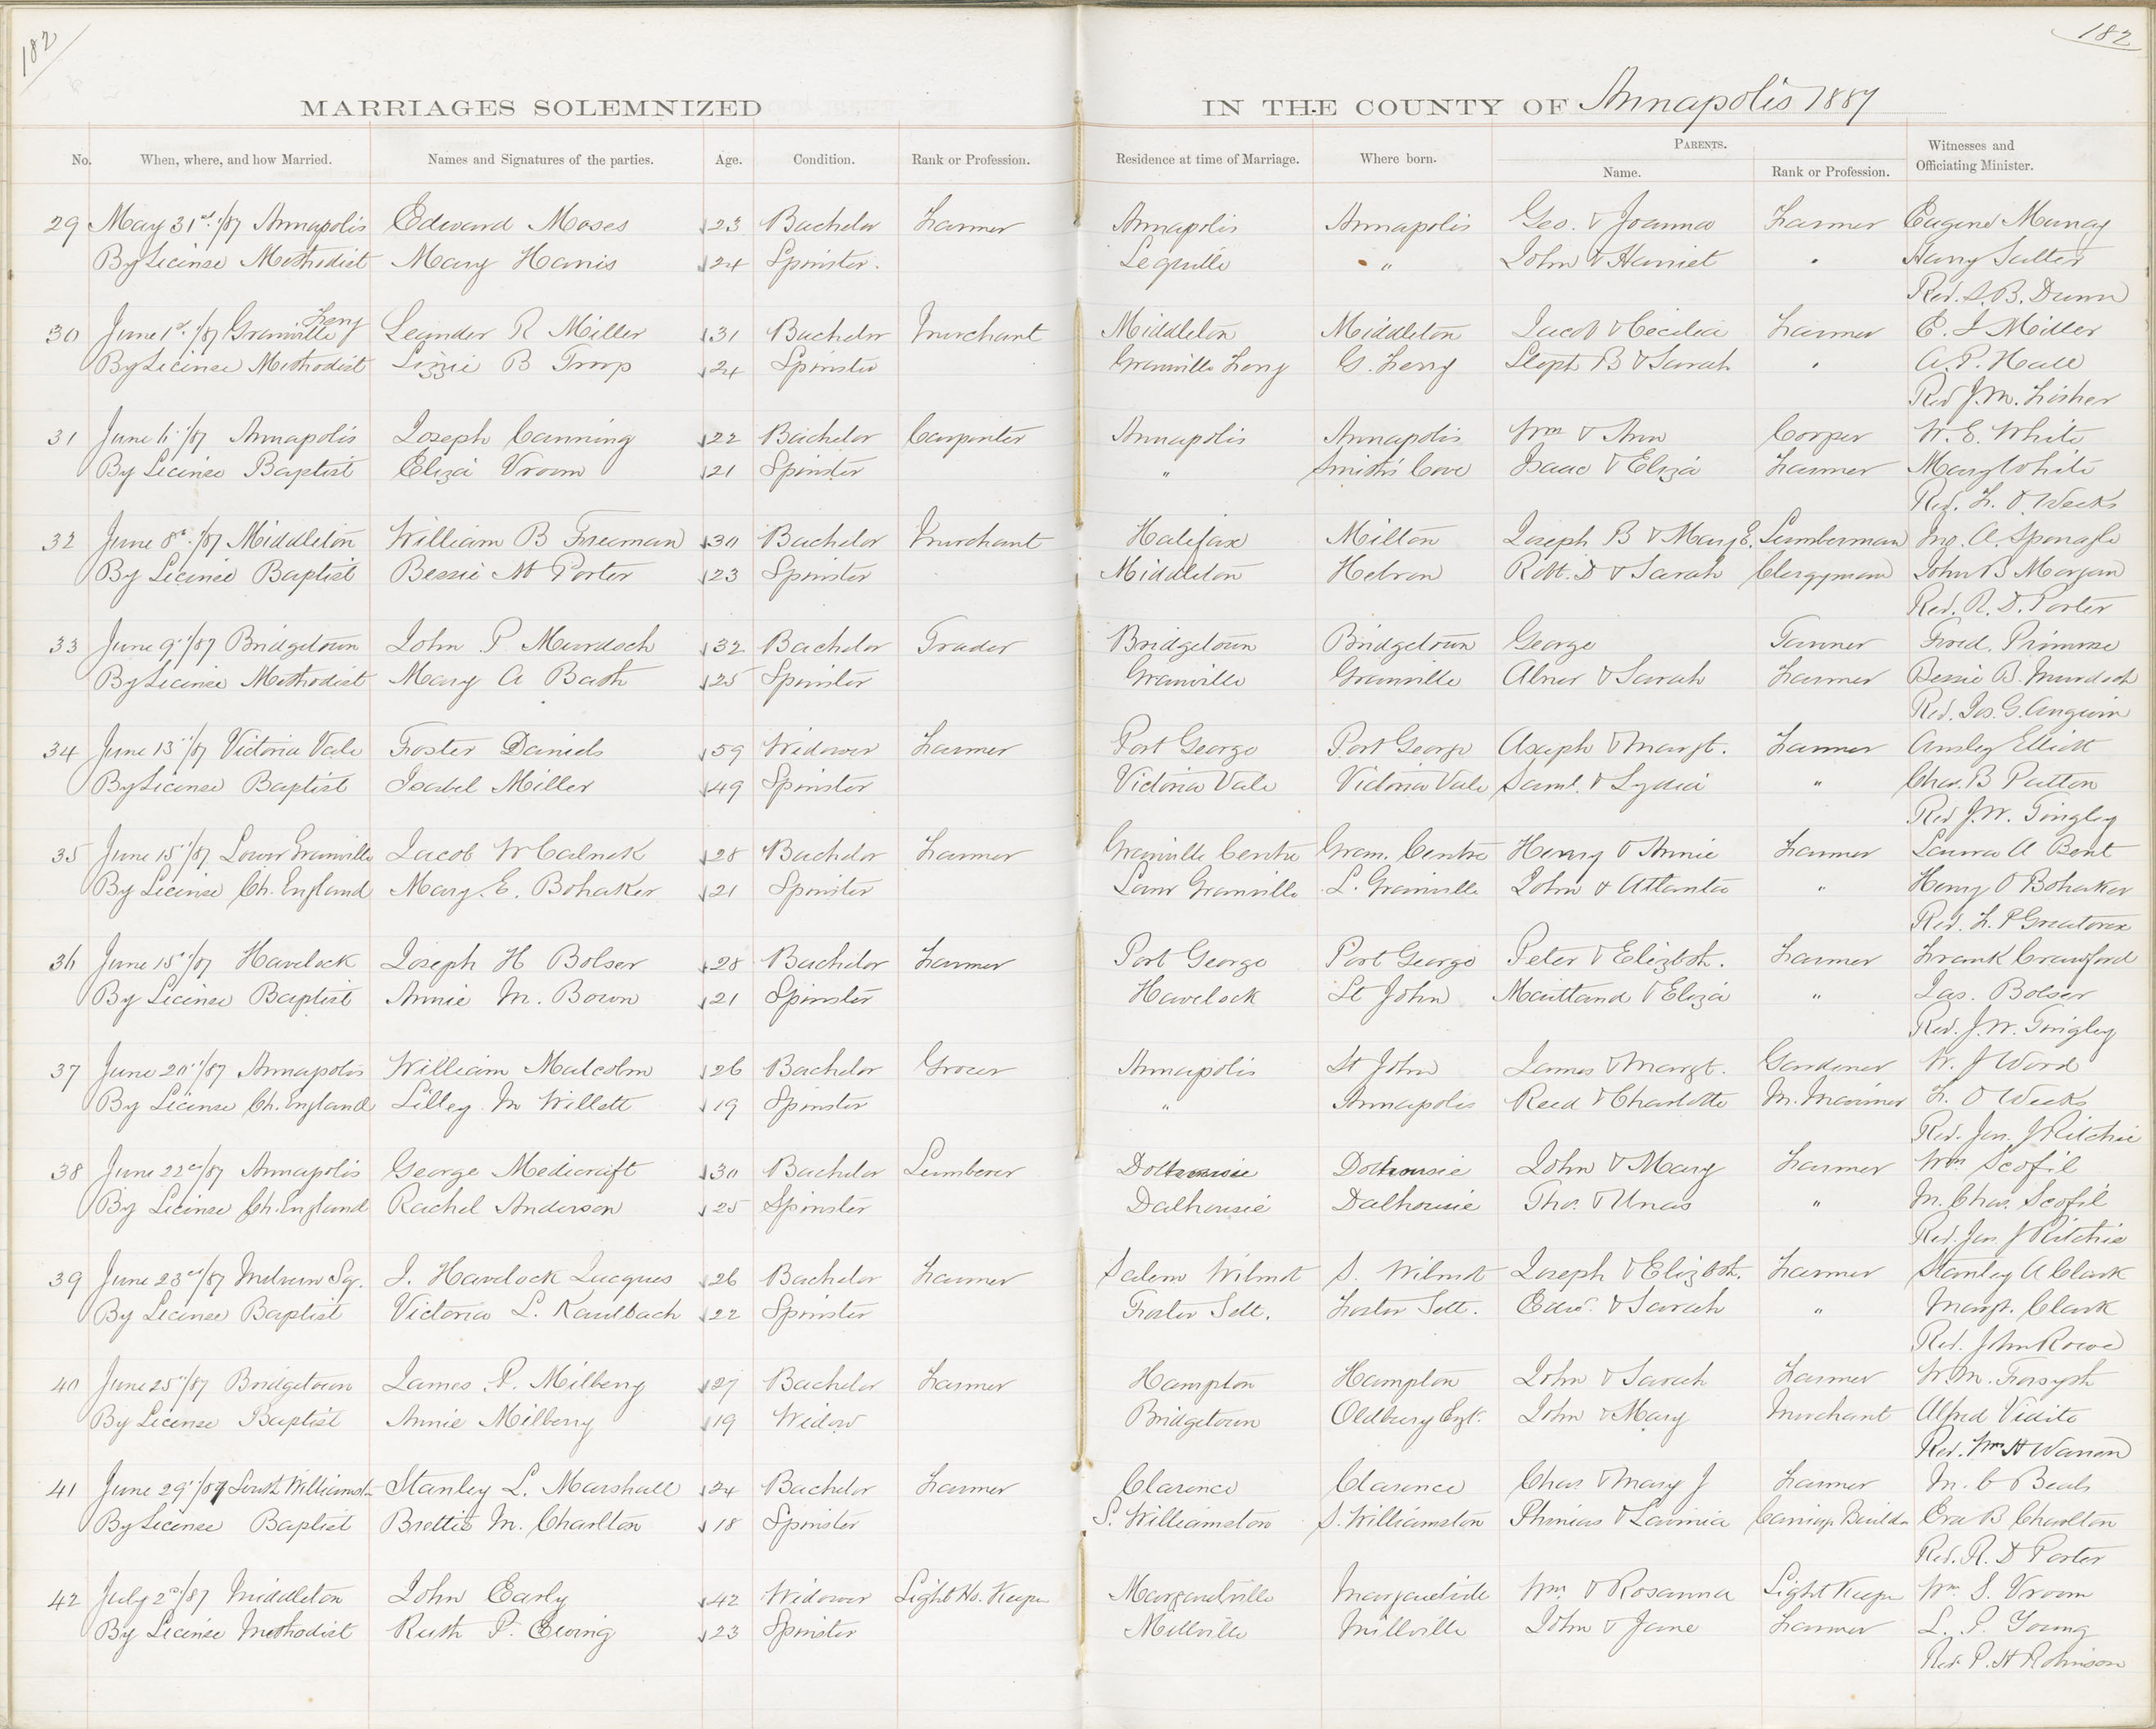 182
182
MARRIAGES SOLEMNIZED IN THE COUNTY OF Annapolis 1887
No. When, where, and how Married. Names and Signatures of the parties. Age. Condition. Rank or Profession. Residence at time of Marriage. Where born. PARENTS. Name. Rank or Profession. Witnesses and Officiating Minister.
29 May 31st /87 Annapolis Edward Moses 23 Bachelor Farmer Annapolis Annapolis Geo. & Joanna Farmer Eugene Munay
By License Methodist Mary Harris 24 Spinster. Lequille " John & Harriet " Harry Salter
Rev. S. B. Dunn
30 June 1st /87 Granville Ferry Leander R Miller 31 Bachelor Merchant Middleton Middleton Jacob & Cecilia Farmer E. J Miller
By License Methodist Lizzie B Troop 24 Spinster Granville Ferry G. Ferry Steph B & Sarah " A. P. Hall
Rev J. M. Fisher
31 June 6" /87 Annapolis Joseph Canning 22 Bachelor Carpenter Annapolis Annapolis Wm & Ann Cooper W. E. White
By License Baptist Eliza Vroom 21 Spinster " Smith's Cove Isaac & Eliza Farmer Mary White
Rev. F. O. Weeks
32 June 8th /87 Middleton William B Freeman 30 Bachelor Merchant Halifax Milton Joseph B & Mary E. Lumberman Jno. A. Sponagle
By License Baptist Bessie M Porter 23 Spinster Middleton Hebron Robt. D & Sarah Clergyman John B Morgan
Rev. R. D. Porter
33 June 9" /87 Bridgetown John P. Murdoch 32 Bachelor Trader Bridgetown Bridgetown George Tanner Fred. Primrose
By License Methodist Mary A Bath 25 Spinster Granville Granville Abner & Sarah Farmer Bessie B. Murdoch
Rev. Jos. G. Angwin
34 June 13" /87 Victoria Vale Foster Daniels 59 Widower Farmer Port George Port George Asaph & Margt. Farmer Ansley Elliott
By License Baptist Isabel Miller 49 Spinster Victoria Vale Victoria Vale Saml. & Lydia " Chas. B Patton
Rev J. W. Tingley
35 June 15" /87 Lower Granville Jacob W Calnek 28 Bachelor Farmer Granville Centre Gran. Centre Henry & Annie Farmer Laura A Bent
By License Ch. England Mary E. Bohaker 21 Spinster Lowr Granville L. Granville John & Atlanta " Henry O Bohaker
Rev. F. P Greatorex
36 June 15" /87 Havelock Joseph H Bolser 28 Bachelor Farmer Port George Port George Peter & Elizbth. Farmer Frank Crawford
By License Baptist Annie M. Bown 21 Spinster Havelock St John Maitland & Eliza " Jas. Bolser
Rev. J. W. Tingley
37 June 20" /87 Annapolis William Malcolm 26 Bachelor Grocer Annapolis St John James & Margt. Gardener W. J Word
By License Ch. England Lilley M Willett 19 Spinster " Annapolis Reed & Charlotte M. Mariner F. O Weeks
Rev. Jas. J Ritchie
38 June 22nd /87 Annapolis George Medicraft 30 Bachelor Lumberer Dalhousie Dalhousie John & Mary Farmer Wm Scofil
By License Ch. England Rachel Anderson 25 Spinster Dalhousie Dalhousie Tho. & Unas " M. Chas. Scofil
Rev. Jas. J Ritchie
39 June 23rd /87 Melvern Sq. J. Havelock Jacques 26 Bachelor Farmer Salem Wilmot S. Wilmot Joseph & Elizbth. Farmer Stanley A Clark
By License Baptist Victoria L. Kaulbach 22 Spinster Foster Sett. Foster Sett. Edw. & Sarah " Margt. Clark
Rev. John Rowe
40 June 25" /87 Bridgetown James P. Milberry 27 Bachelor Farmer Hampton Hampton John & Sarah Farmer W. M. Forsyth
By License Baptist Annie Milberry 19 Widow Bridgetown Oldbury Egt. John & Mary Merchant Alfred Vidito
Rev. Wm H Warren
41 June 29" /87 South Williamstn Stanley L. Marshall 24 Bachelor Farmer Clarence Clarence Chas & Mary J Farmer M. C Beals
By License Baptist Brettie M. Charlton 18 Spinster S. Williamston S. Williamston Phinias & Lavinia Carriage Buildr Eva B Charlton
Rev. R. D Porter
42 July 2nd /87 Middleton John Early 42 Widower Light Ho. Keeper Margaretville Margaretville Wm. & Rosanna Light Keeper Wm. S. Vroom
By License Methodist Ruth P. Ewing 23 Spinster Millville Millville John & Jane Farmer L. S. Young
Rev P. H Robinson